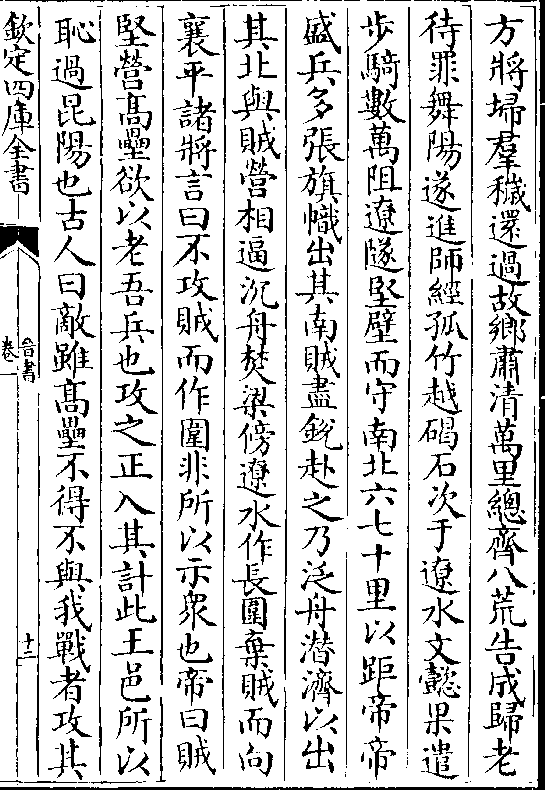 方將埽羣穢還過故鄉肅清萬里總齊八荒告成歸老
待罪舞陽遂進師經孤竹越碣石次于遼水文懿果遣
步騎數萬阻遼隧堅壁而守南北六七十里以距帝帝
盛兵多張旗幟出其南賊盡銳赴之乃泛舟潛濟以出
其北與賊營相逼沉舟焚梁傍遼水作長圍棄賊而向
襄平諸將言曰不攻賊而作圍非所以示衆也帝曰賊
堅營高壘欲以老吾兵也攻之正入其計此王邑所以
恥過昆陽也古人曰敵雖高壘不得不與我戰者攻其
欽定四庫全書
晉書
卷一
十二